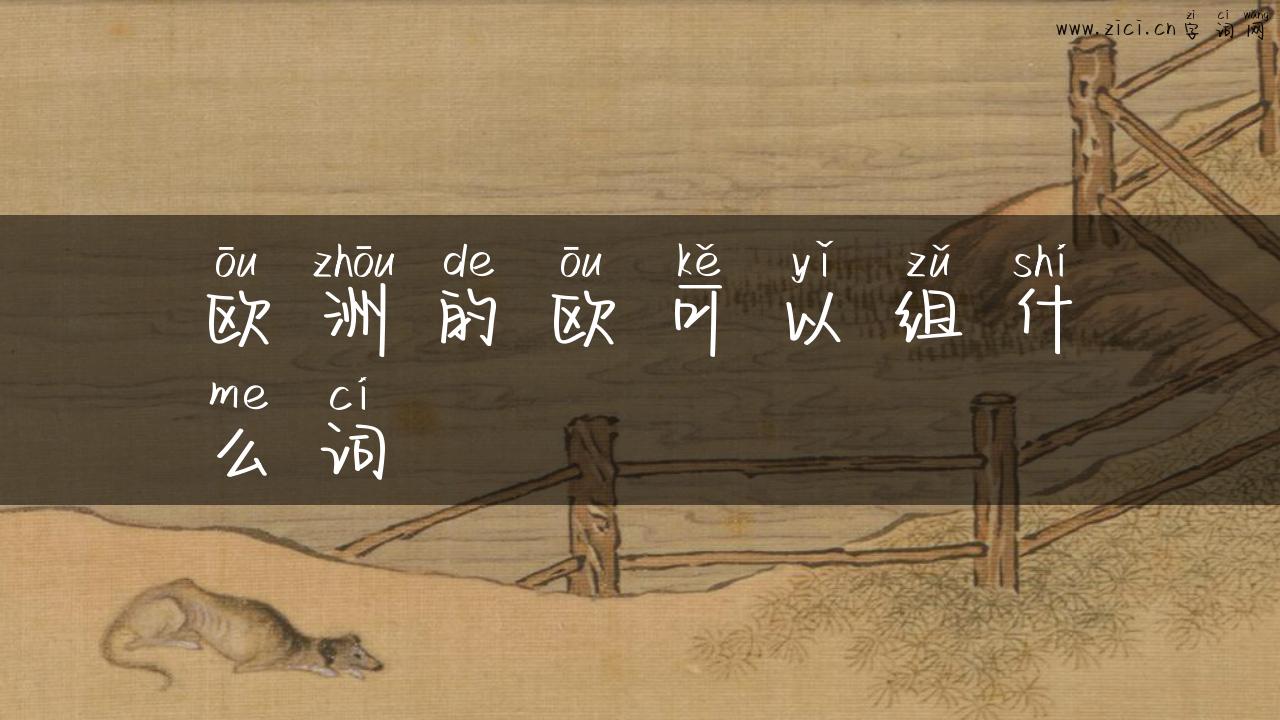 zi ci wang
www.zici.cn 字词网
ōu zhōu de ōu kě yǐ zǔ shí
欧洲的欧可以组什
me cí
么词